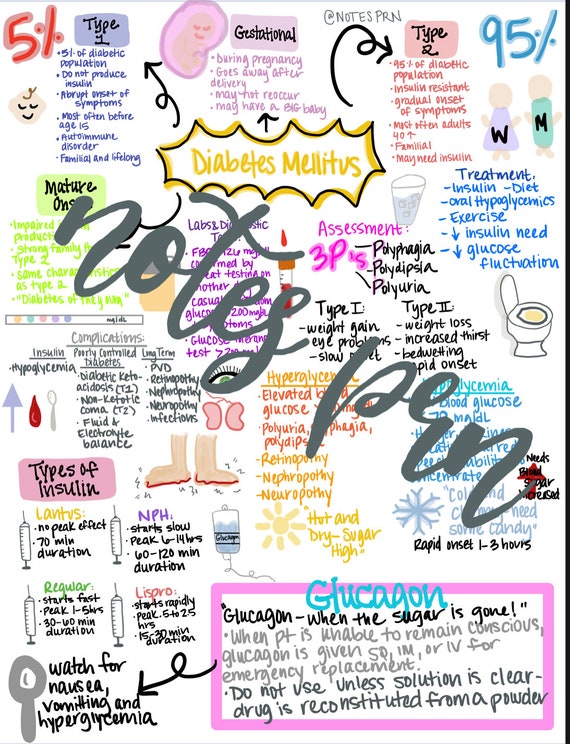 5%
Type
1
• 5% of diabetic
population
• Do not produce
insulin
• Abrupt onset of
symptoms
• Most often before
age 15
• Autoimmune
disorder
• Familial and lifelong
Gestational
• During pregnancy
• Goes away after
delivery
• may not reoccur
• may have a BIG baby
@NOTESPRN
Type
2
• 95% of diabetic
population
• Insulin resistant
• gradual onset
of symptoms
• Most often adults
40↑
• Familial
• May need insulin
95%
W M
Diabetes Mellitus
Mature
• Impaired
• strong family
Type 2
• same characteristics
as type 2
• "Diabetes of the young"
Labs & Diagnostic
confirmed by
repeat testing on
another
casual
glucose 200 mg/dL
symptoms
Glucose
test > 200
Assessment:
3P's
Polyphagia
Polydipsia
Polyuria
Treatment:
- Insulin - Diet
- oral Hypoglycemics
- Exercise
- ↓ insulin need
- ↓ glucose
fluctuation
Type I:
- weight gain
- eye problems
- slow onset
Type II:
- weight loss
- increased thirst
- bedwetting
- rapid onset
mg/dL
Complications:
Insulin
• Hypoglycemia
Poorly Controlled
Diabetes
• Diabetic Keto-
acidosis (T1)
• Non-Ketotic
Coma (T2)
• Fluid &
Electrolyte
balance
Long Term
• PVD
• Retinopathy
• Nephropathy
• Neuropathy
• Infections
Hyperglycemia
- Elevated blood
glucose
- Polyuria, polyphagia,
polydipsia
- Retinopathy
- Nephropathy
- Neuropathy
"Hot and
Dry - Sugar
High"
Hypoglycemia
Blood glucose
mg/dL
"Cold and
clammy - need
some candy"
Rapid onset 1-3 hours
Needs
Blood
Sugar
Increased
notes prn
Types of
Insulin
Lantus:
• no peak effect
• 70 min
duration
NPH:
• starts slow
• Peak 6-14hrs
• 60-120 min
duration
Glucagon
Regular:
• starts fast
• Peak 1-5hrs
• 30-60 min
duration
Lispro:
• starts rapidly
• Peak .5 to 2.5
hrs
• 15-30 min
duration
watch for
nausea,
vomitting and
hyperglycemia
Glucagon
"Glucagon - when the sugar is gone!"
• When pt is unable to remain conscious,
glucagon is given SQ, IM, or IV for
emergency replacement.
• Do not use unless solution is clear -
drug is reconstituted from a powder